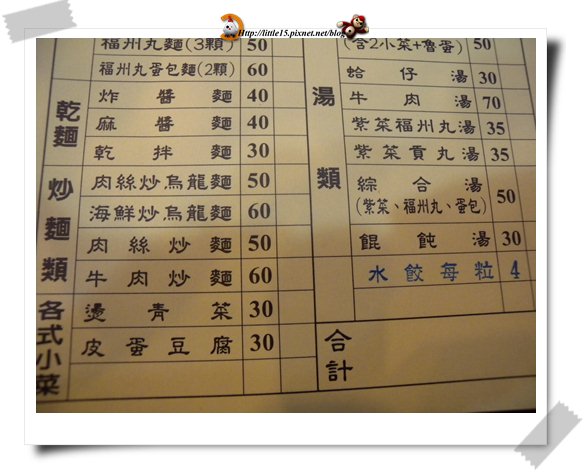 Http://little15.pixnet.net/blog
福州丸麵(3顆) 50
福州丸蛋包麵(2顆) 60
乾麵
炸醬麵 40
麻醬麵 40
乾拌麵 30
炒麵類
肉絲炒烏龍麵 50
海鮮炒烏龍麵 60
肉絲炒麵 50
牛肉炒麵 60
各式小菜
燙青菜 30
皮蛋豆腐 30
(含2小菜+魯蛋) 50
湯類
蛤仔湯 30
牛肉湯 70
紫菜福州丸湯 35
紫菜貢丸湯 35
綜合湯
(紫菜、福州丸、蛋包) 50
餛飩湯 30
水餃每粒 4
合計